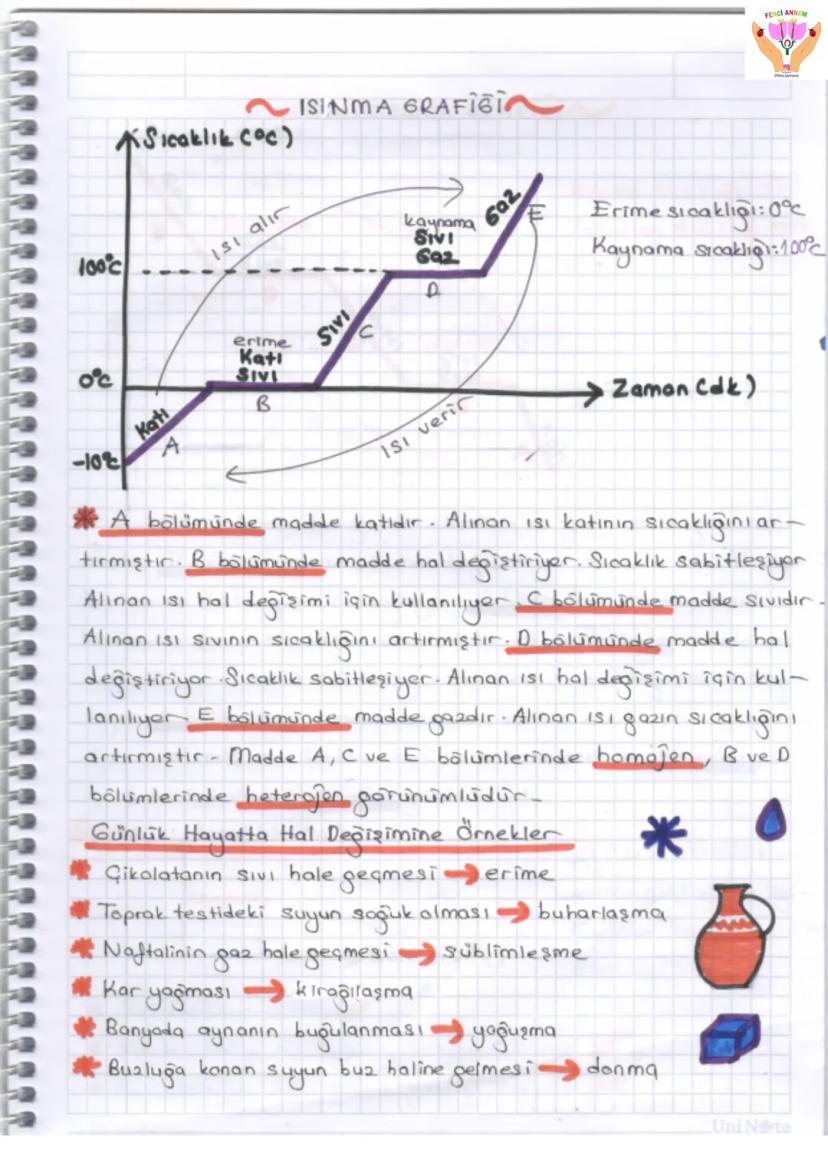 FENCİ ANNEM
ISINMA GRAFİĞİ
Sıcaklık (°C)
Isı alır
kaynama
Sıvı
Gaz
Gaz
E
Erime sıcaklığı: 0°C
Kaynama sıcaklığı: 100°C
100°C
D
Sıvı
C
erime
Katı
Sıvı
0°C
Zaman (dk)
B
Katı
A
Isı verir
-10°C
A bölümünde madde katıdır. Alınan ısı katının sıcaklığını ar-
tırmıştır. B bölümünde madde hal değiştiriyor. Sıcaklık sabitleşiyor
Alınan ısı hal değişimi için kullanılıyor. C bölümünde madde sıvıdır.
Alınan ısı sıvının sıcaklığını artırmıştır. D bölümünde madde hal
değiştiriyor. Sıcaklık sabitleşiyor. Alınan ısı hal değişimi için kul-
lanılıyor. E bölümünde madde gazdır. Alınan ısı gazın sıcaklığını
artırmıştır - Madde A, C ve E bölümlerinde homojen, B ve D
bölümlerinde heterojen görünümlüdür.
Günlük Hayatta Hal Değişimine Örnekler
* Çikolatanın sıvı hale geçmesi → erime
* Toprak testideki suyun soğuk olması → buharlaşma
* Naftalinin gaz hale geçmesi → süblimleşme
* Kar yağması → kırağılaşma
* Banyoda aynanın buğulanması → yoğuşma
* Buzluğa konan suyun buz haline gelmesi → donma
UniNote